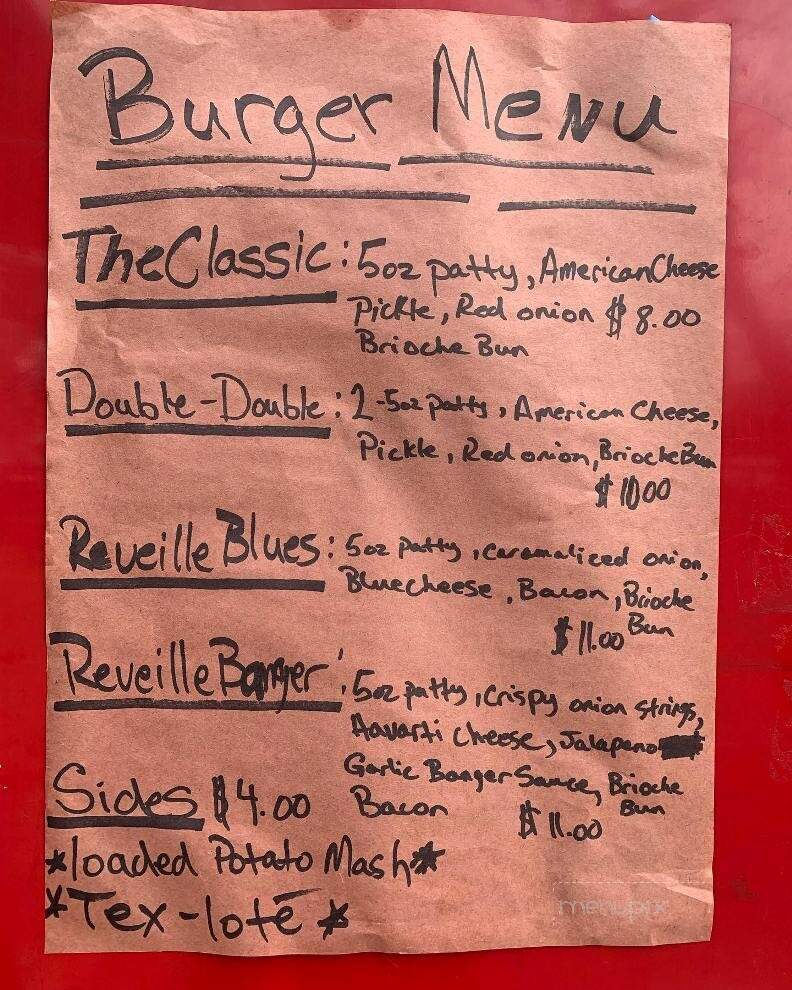 Burger Menu
The Classic: 5oz patty, American Cheese
Pickle, Red onion $8.00
Brioche Bun
Double-Double: 2-5oz patty, American Cheese,
Pickle, Red onion, Brioche Bun
$10.00
Reveille Blues: 5oz patty, caramaliced onion,
Blue cheese, Bacon, Brioche
Bun
$11.00
Reveille Banger: 5oz patty, crispy onion strings,
Havarti cheese, Jalapeno
Garlic Banger Sauce, Brioche
Bun
Bacon $11.00
Sides $4.00
*loaded Potato Mash*
*Tex-loté*
menupix